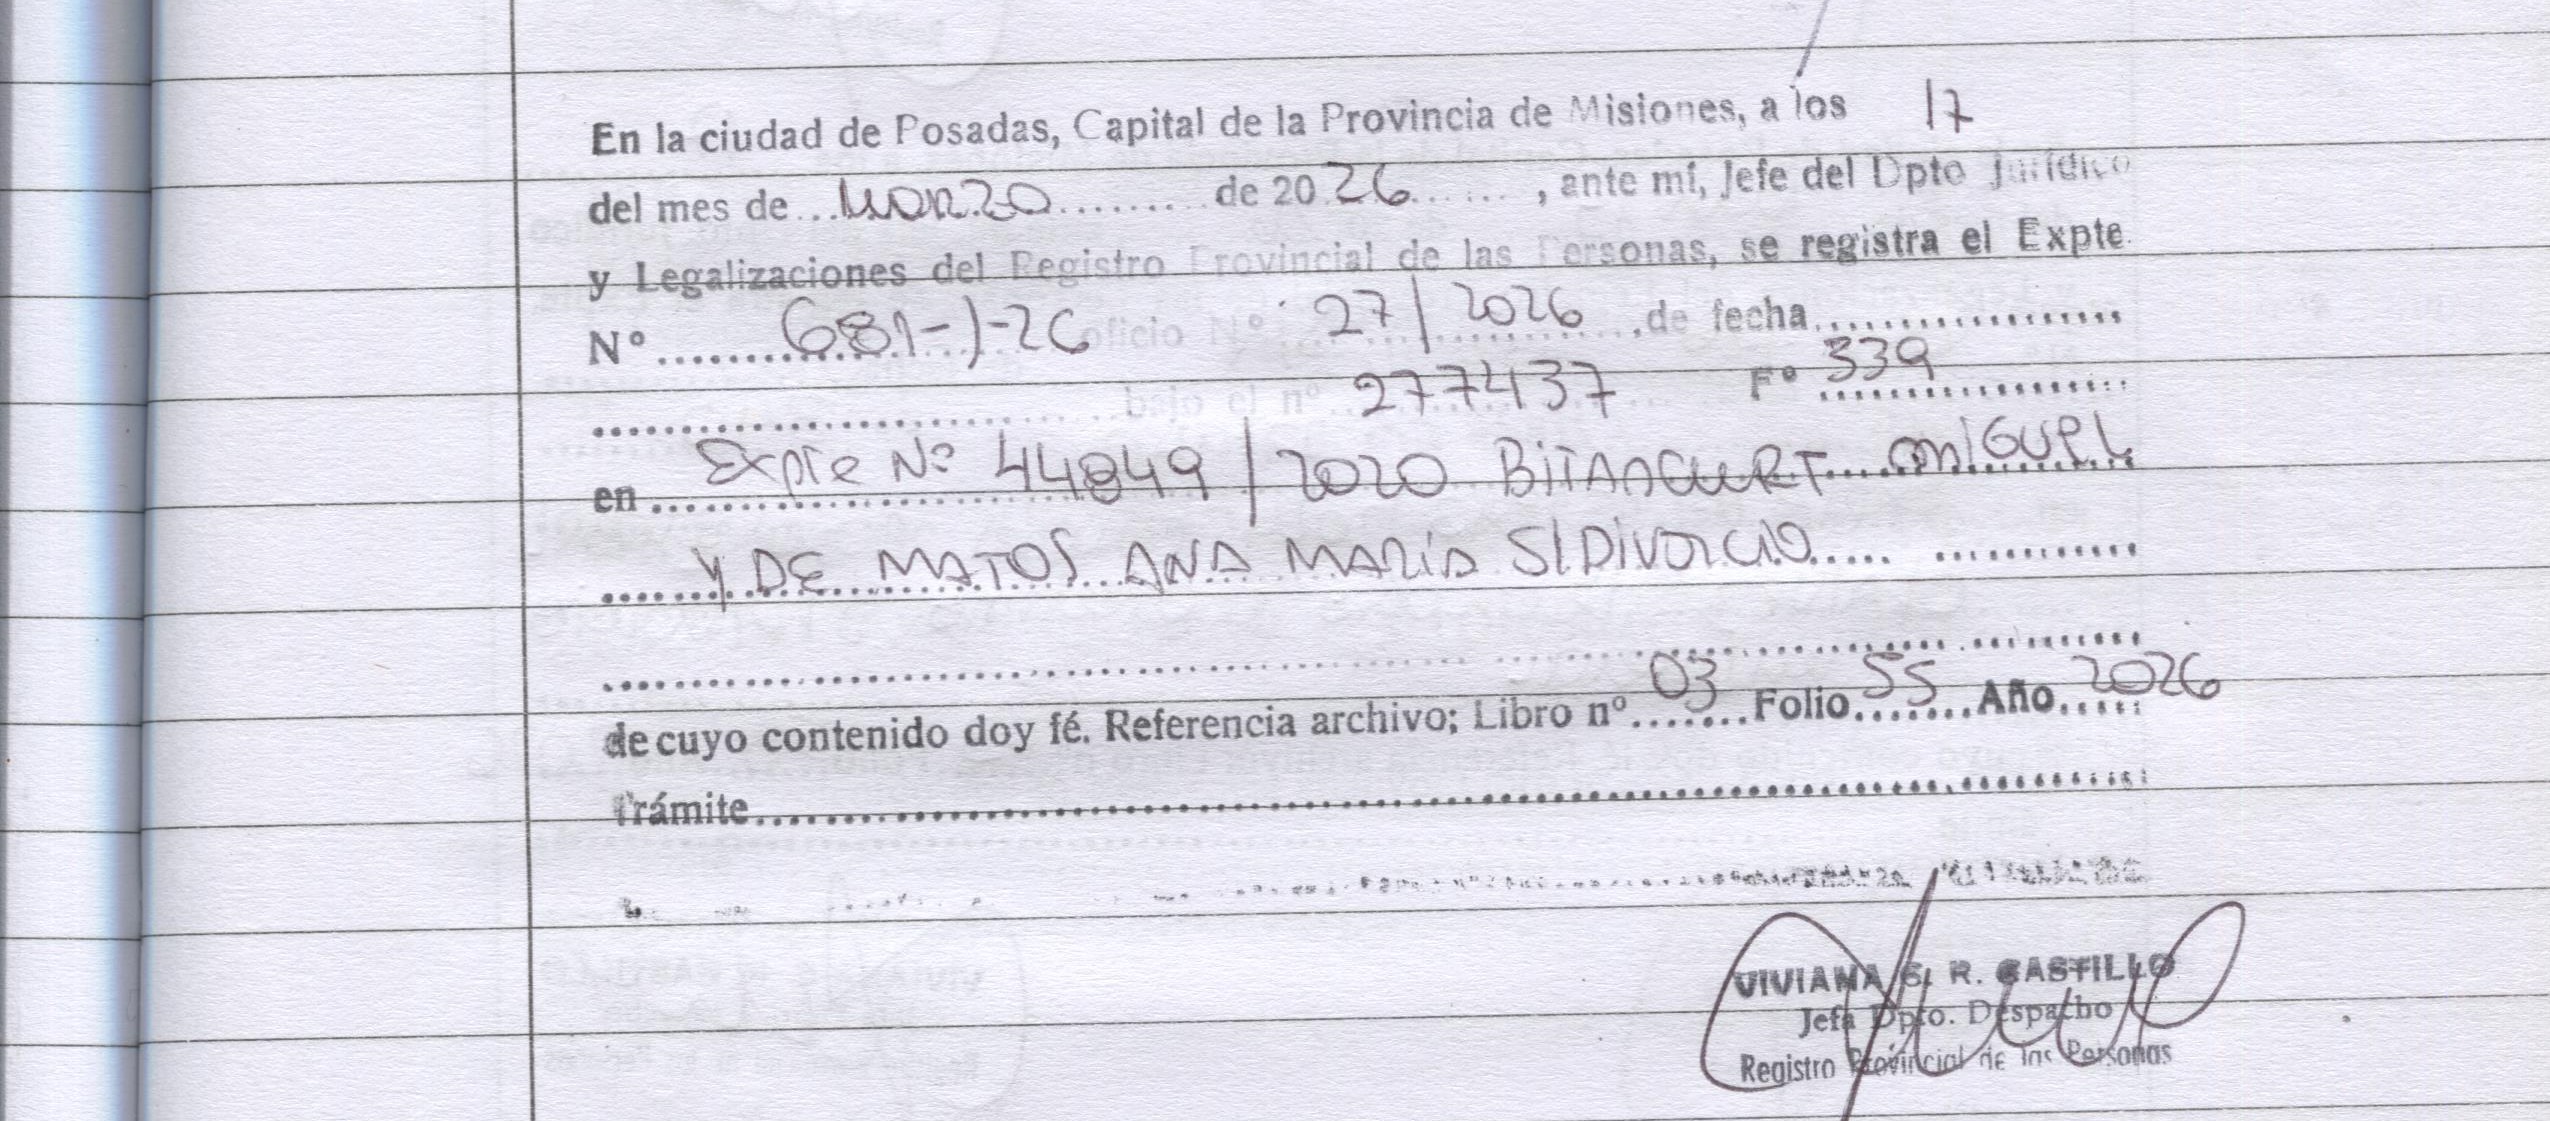 En la ciudad de Posadas, Capital de la Provincia de Misiones, a los 17
del mes de...Marzo.......... de 2026......, ante mí, Jefe del Dpto Jurídico
y Legalizaciones del Registro Provincial de las Personas, se registra el Expte
Nº........681-J-26 oficio Nº 27/2026 .de fecha...................
..............................bajo el nº 277437 Fº 339
en Expte Nº 44849/2020 BITANCURT MIGUEL
Y DE MATOS ANA MARÍA S/DIVORCIO
de cuyo contenido doy fé. Referencia archivo; Libro nº 03 Folio 55 Año 2026
Trámite..............................
VIVIANA S. R. CASTILLO
Jefa Dpto. Despacho
Registro Provincial de las Personas